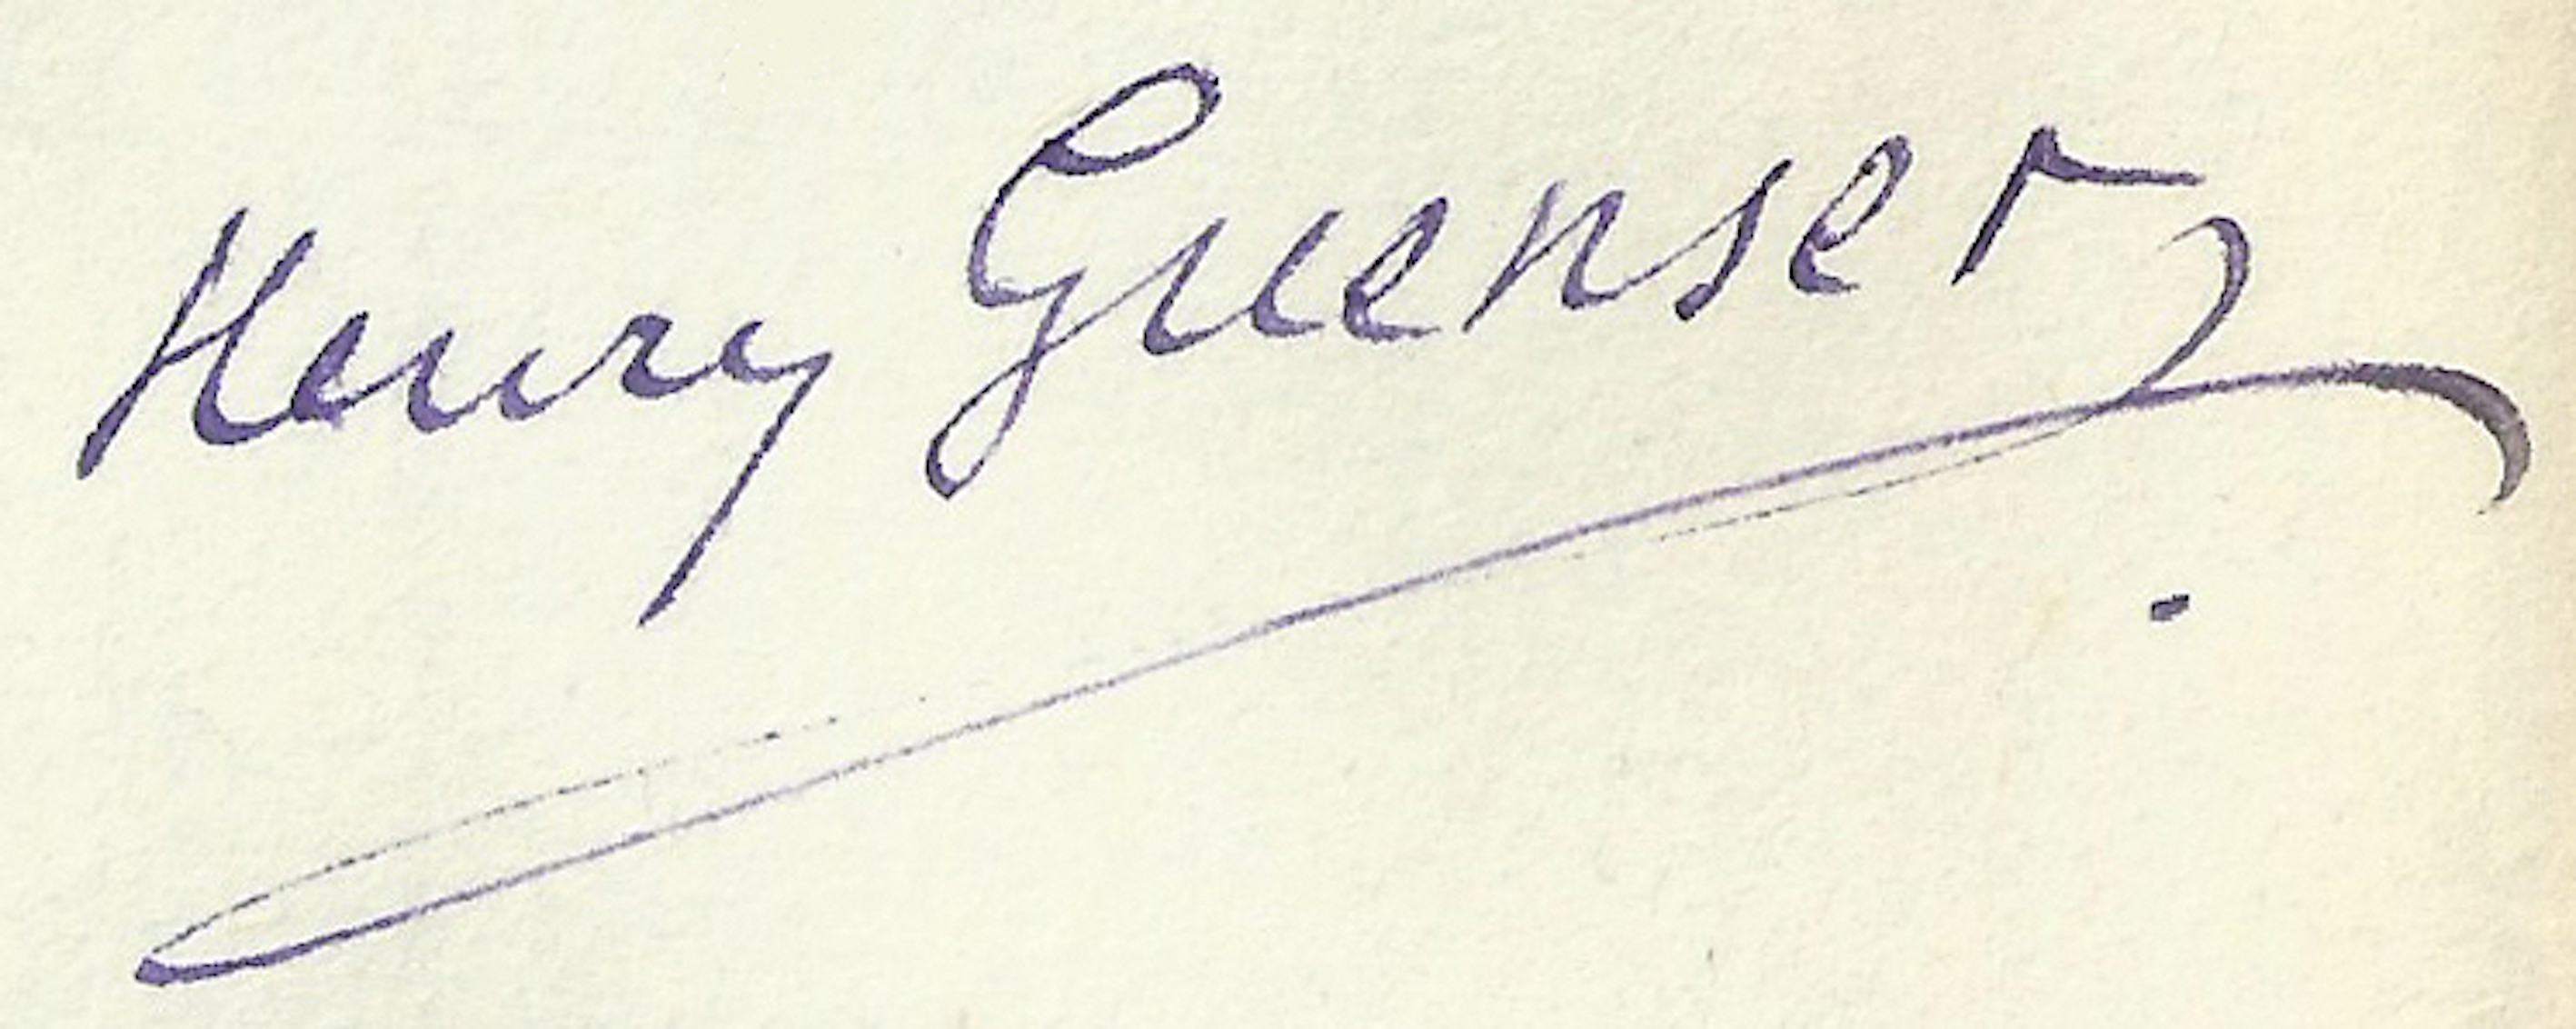 Henry Guenser